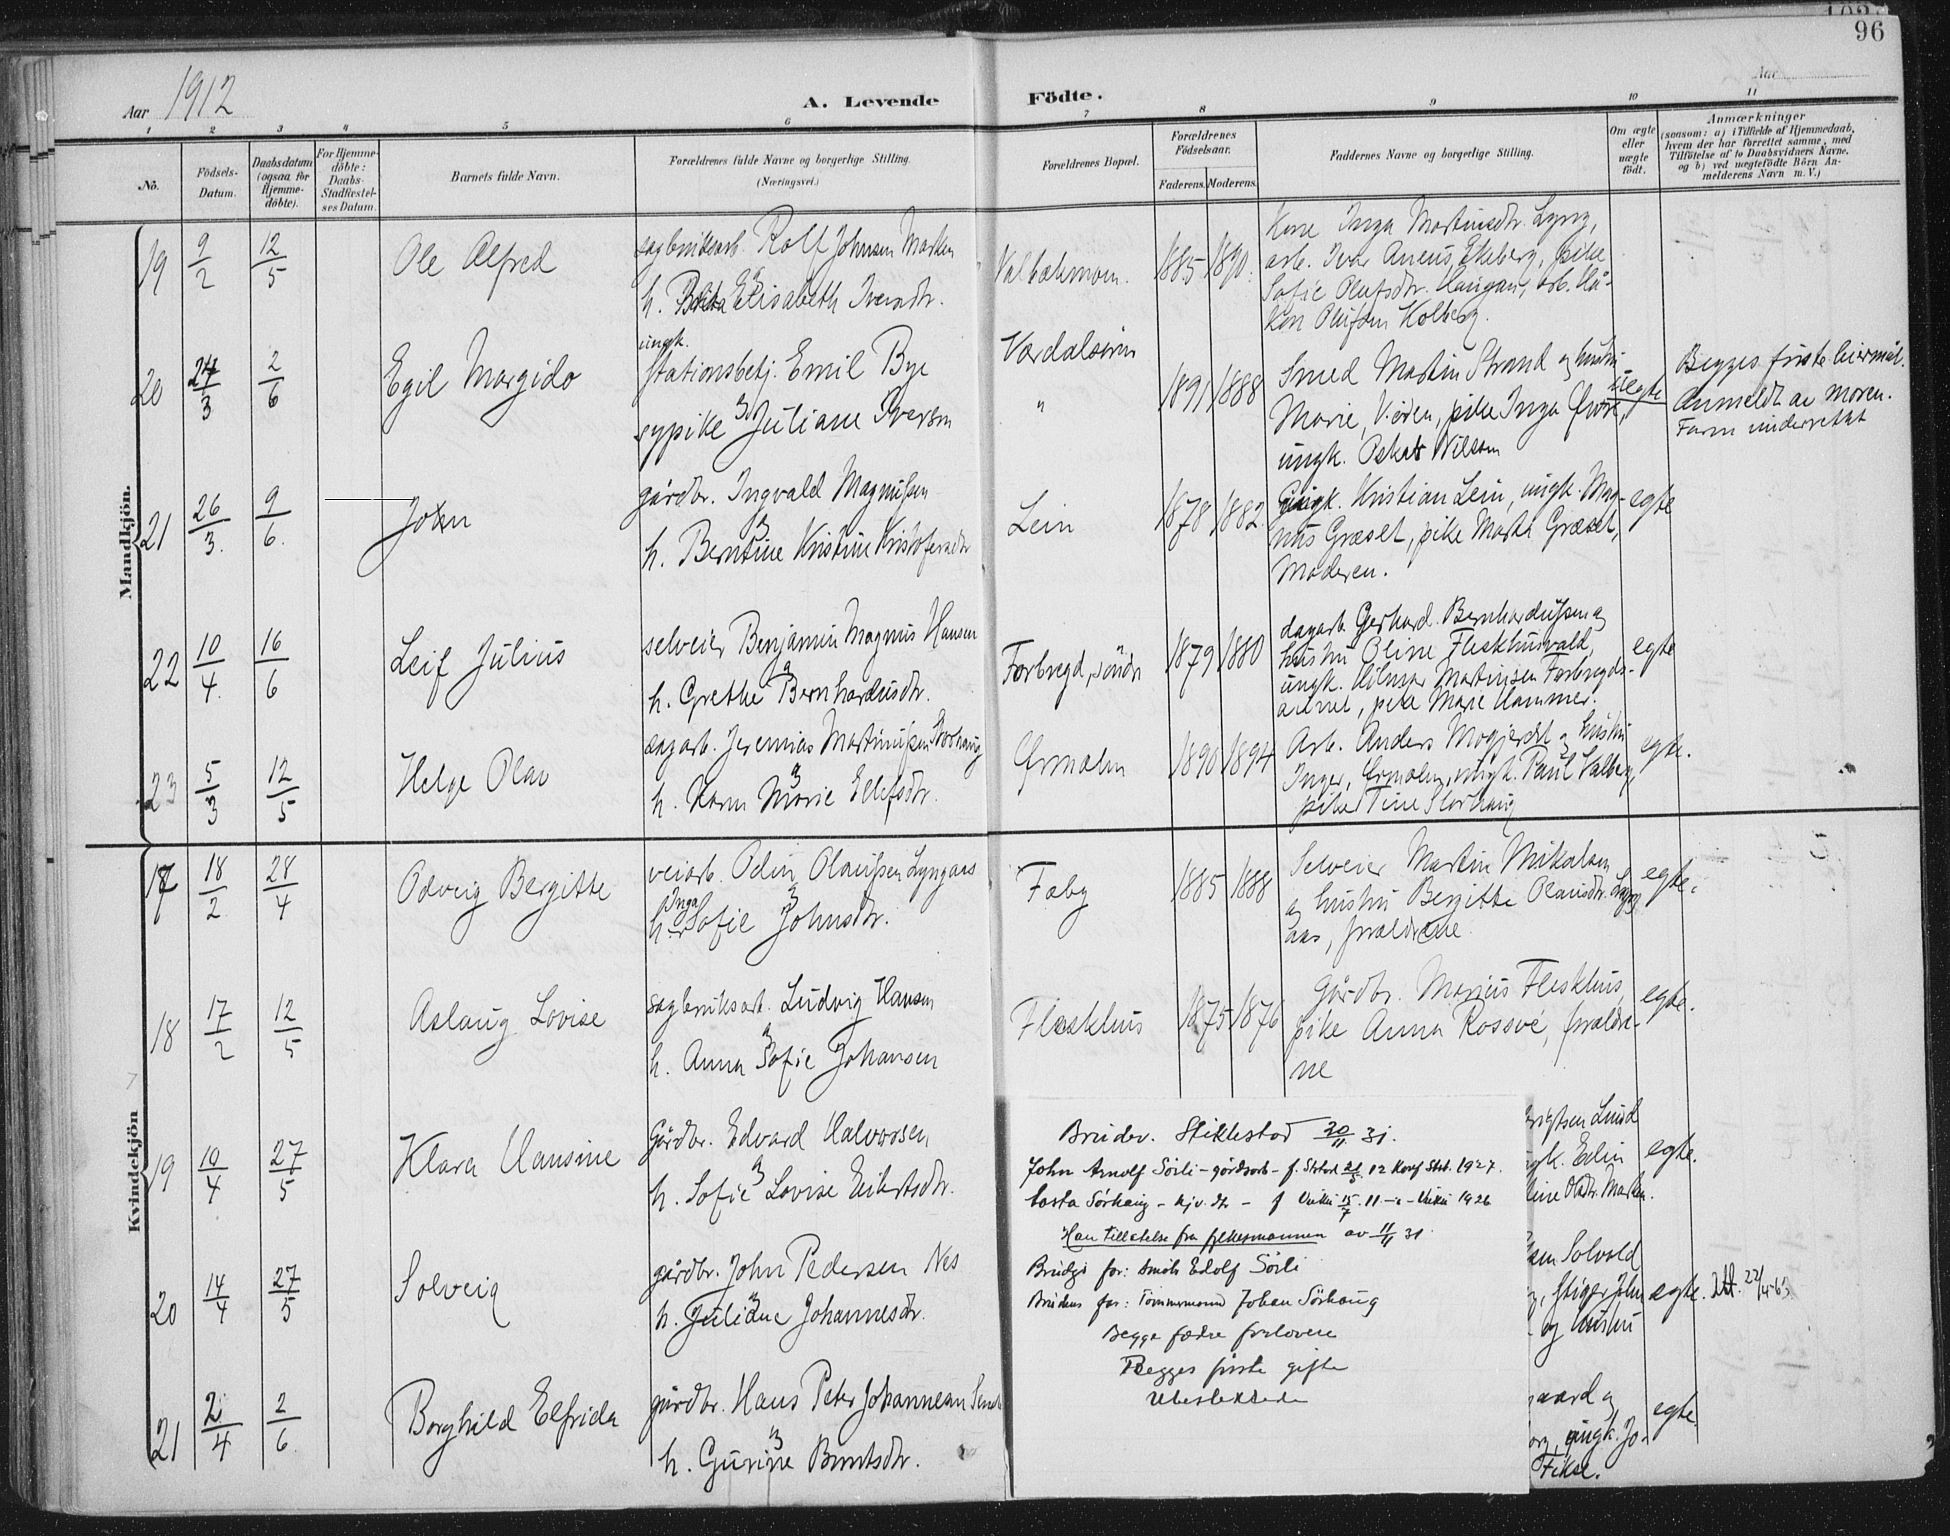 96
Aar 1912
A. Levende Födte.
Aar
1 2 3 4 5 6 7 8 9 10 11
No.
Födsels-Datum.
Daabsdatum (ogsaa for Hjemme-döbte).
For Hjemme-döbte: Daabs-Stadfæstel-ses Datum.
Barnets fulde Navn.
Forældrenes fulde Navne og borgerlige Stilling.
(Næringsvei.)
Forældrenes Bopæl.
Forældrenes Födselsaar.
Faderens. Moderens.
Faddernes Navne og borgerlige Stilling.
Om ægte eller uægte födt.
Anmærkninger
(saasom: a) i Tilfælde af Hjemmedaab,
hvem der har forrettet samme, med
Tilföielse af to Daabsvidners Navne.
og b) ved uægtefödte Börn An-
melderens Navn m. V.)
Mandkjön.
19 9/2 12/5 Ole Alfred
sagbruksarb. Rolf Johnsen Marken
h. Elisabeth Iversdtr.
1885 1890.
Kone Inga Martinsdtr. Lyng,
arb. Ivar Aneus Ekeberg, pike
Sofie Olufsdtr. Haugan, arb. Hå-
kon Olufsen Kolberg.
20 24/3 2/6 Egil Margido
ungk.
stationsbetj. Emil Bye
sypike Juliane Iversen
Værdalsören
"
1891 1888
Smed Martin Strand og hustru
Marie, Verden, pike Inga
ungk. Oskar Nilsson
uegte
Begges förste leiermål.
Anmeldt av moren.
Faren underrettet
21 26/3. 9/6. John
gårdbr. Ingvald Magnussen
h. Berntine Kristine Kristofersdtr
Lein
1878 1882.
ungk. Kristian Lein, ungk. Mag-
nus Græset, pike Marta Græset,
Moderen.
egte
22 10/4. 16/6 Leif Julius
selveier Benjamin Magnus Hansen
h. Grethe Bernhardusdtr.
Forbregd, söndr
1879 1880
dagarb. Gerhard Bernhardussen og
hustru Oline Fleskhusvald,
ungk. Hilmar Martinsen Forbregds-
aunet, pike Marie Hammer.
egte
23 5/3 12/5 Helge Olav
dagarb. Jeremias Martinussen Storhaug
h. Karen Marie Ellefsdtr.
Ørmelen
1890 1894
Arb. Anders Mogjerdet og hustru
Inger, Ørmelen, ungk. Paul Halberg,
pike Tine Storhaug
egte.
Kvindekjön
17 18/2 28/4 Odveig Bergitte
veiarb. Odin Olaussen Lyngaas
h. Inga Sofie Johnsdtr.
Faby
1885 1888
Selveier Martin Mikalsen
og hustru Bergitte Olausdtr. Lyng-
aas, forældrene.
egte.
18 17/2 12/5 Aslaug Lovise
sagbruksarb. Ludvig Hansen
h. Anna Sofie Johansen
Fleskhus
1875 1876
Gårdbr. Marius Fleskhus,
pike Anna Rossve, forældre-
ne
egte.
19 10/4 27/5 Klara Hansine
Gårdbr. Edvard Halvorsen
h. Sofie Lovise Eriksdtr.
Lund
ngk. Edin
line Olsdtr. Marken.
egte.
20 14/4 27/5 Solveig
gårdbr. John Pedersen Nes
h. Juliane Johannesdtr.
sen Solvold
, stiger John
og hustru
egte.
Utt. 22/4-63
21 2/4 2/6 Borghild Elfrida
gårdbr. Hans Peter Johannesen
h. Gurine Berntsdtr.
gaard og
ungk. Jo-
Fikse.
egte.
Brudev. Stiklestad 30/11 31.
John Arnolf Sörli - gårdsarb - f. Stkst 21/2 12 Konf Stkst. 1927.
Sörhaug - hjv. dtr - f Vuku 15/7. 11 - " - Vuku 1926
Har tillatelse fra fylkesmannen av 11/11 31.
Brudgs far: Edolf Sörli
Brudens far: Tömmermand Johan Sörhaug
Begge fædre forlovere
Begges förste gifte
Ubeslektede